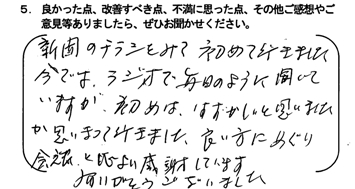 5. 良かった点、改善すべき点、不満に思った点、その他ご感想やご
意見等ありましたら、ぜひお聞かせください。
新聞のチラシをみて 初めて行きました
今では、ラジオで毎日のように聞いて
いますが、初めは、はずかしいと思いました
が思いきって行きました、良い方にめぐり
会えたと心より感謝しています
ありがとうございました